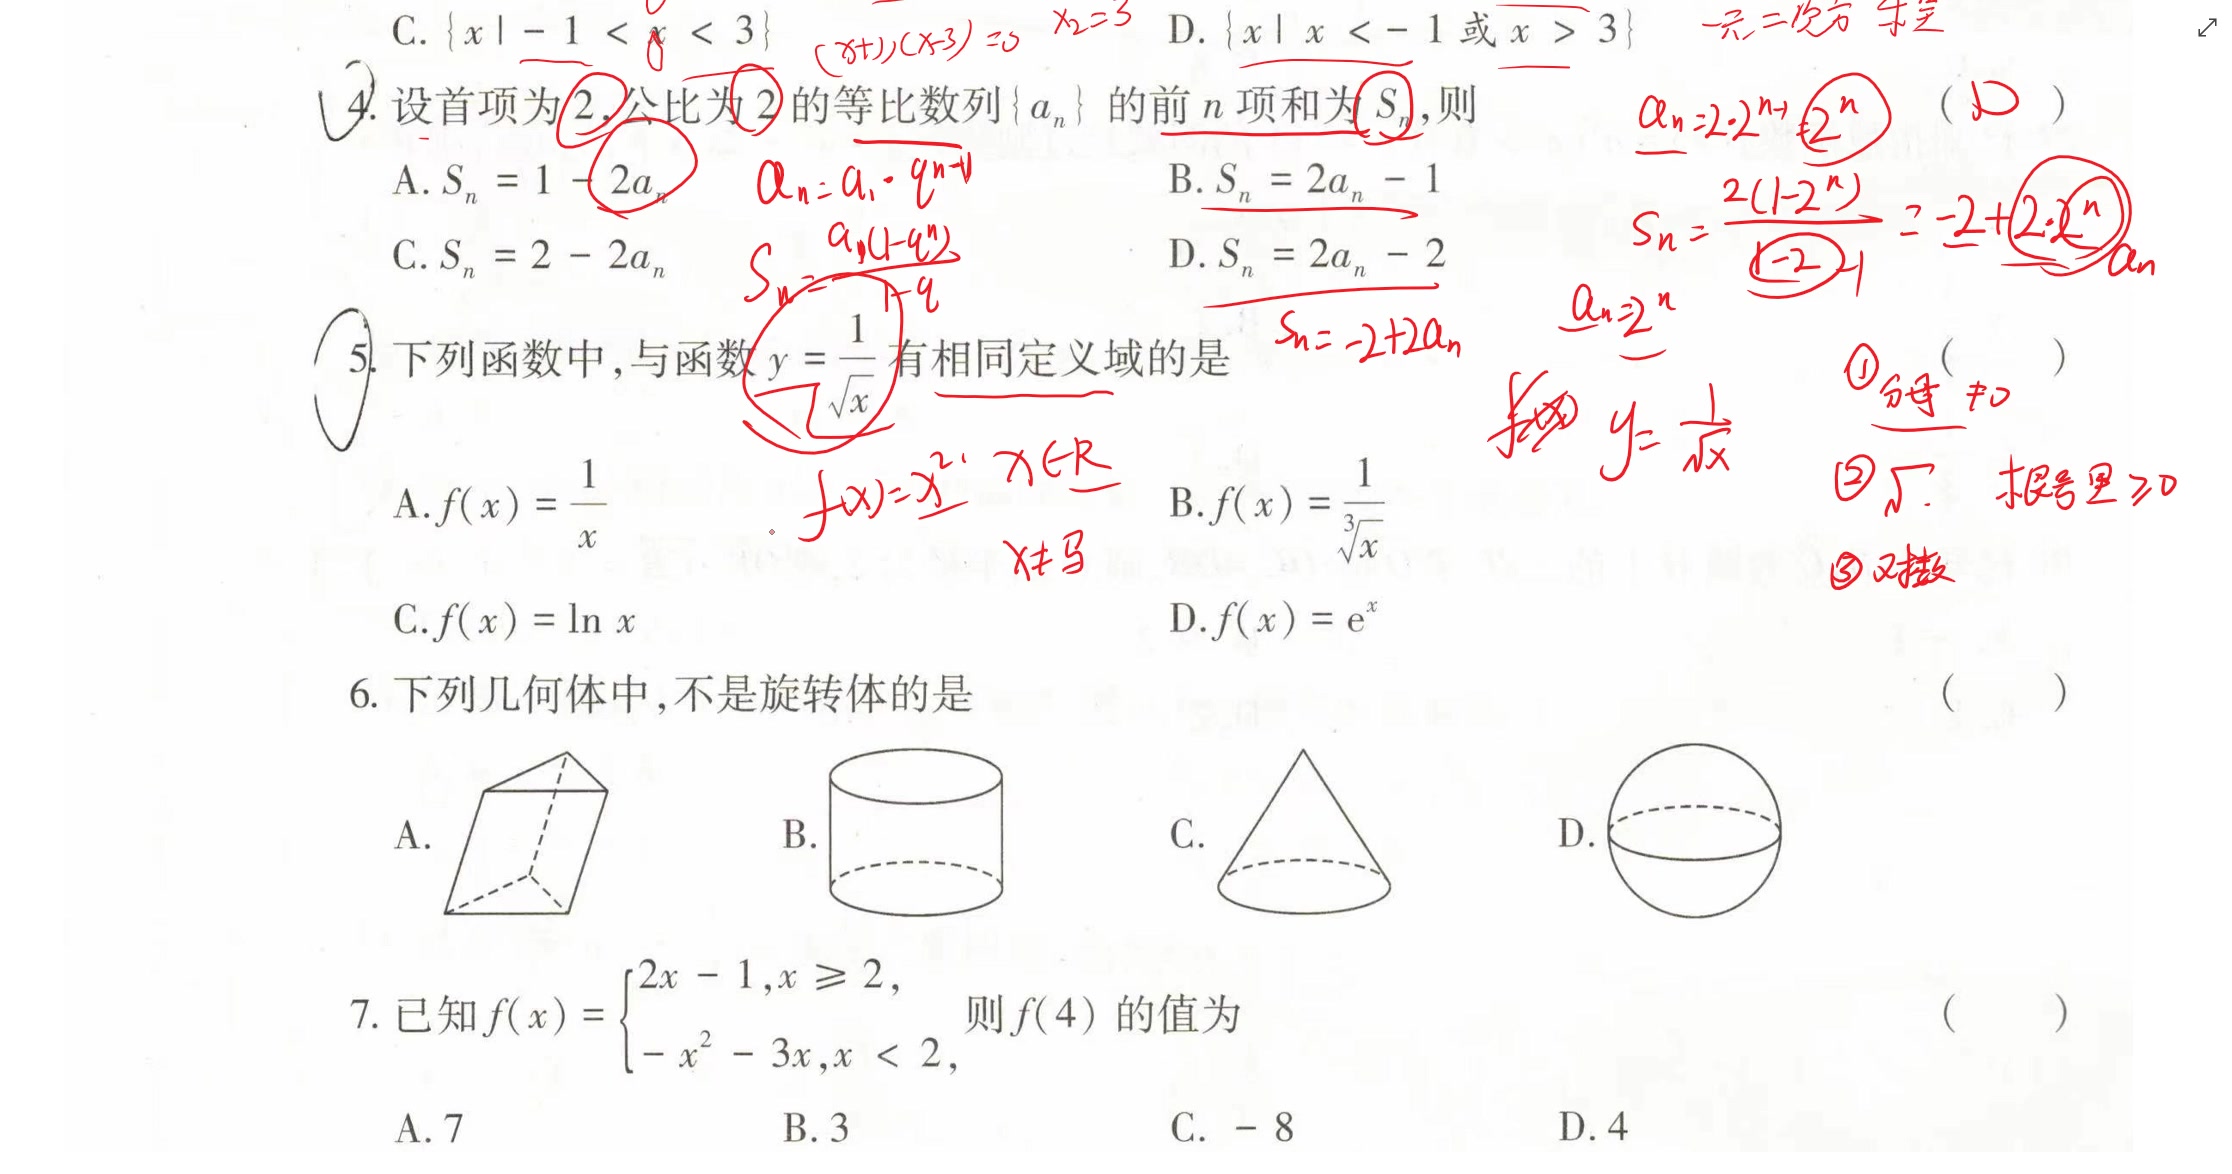 C. {x | - 1 < x < 3}
(x+1)(x-3) = 0
x₂=3
D. {x | x < - 1 或 x > 3}
一元二次方
4. 设首项为 2,公比为 2 的等比数列{aₙ} 的前 n 项和为 Sₙ,则 ( D )
aₙ=2·2ⁿ⁻¹=2ⁿ
A. Sₙ = 1 - 2aₙ
aₙ=a₁·qⁿ⁻¹
B. Sₙ = 2aₙ - 1
Sₙ = 2(1-2ⁿ)/(1-2) = -2+2·2ⁿ
-1
aₙ
C. Sₙ = 2 - 2aₙ
Sₙ = a₁(1-qⁿ)/(1-q)
D. Sₙ = 2aₙ - 2
Sₙ= -2+2aₙ
aₙ=2ⁿ
5. 下列函数中,与函数 y = 1/√x 有相同定义域的是 ( )
y= 1/√x
①分母≠0
②√ 根号里≥0
③对数
f(x)=x² x∈R
x≠3
A. f(x) = 1/x
B. f(x) = 1/∛x
C. f(x) = ln x
D. f(x) = eˣ
6. 下列几何体中,不是旋转体的是 ( )
A. B. C. D.
7. 已知 f(x) = {2x - 1,x ≥ 2, - x² - 3x,x < 2, 则 f(4) 的值为 ( )
A. 7 B. 3 C. - 8 D. 4